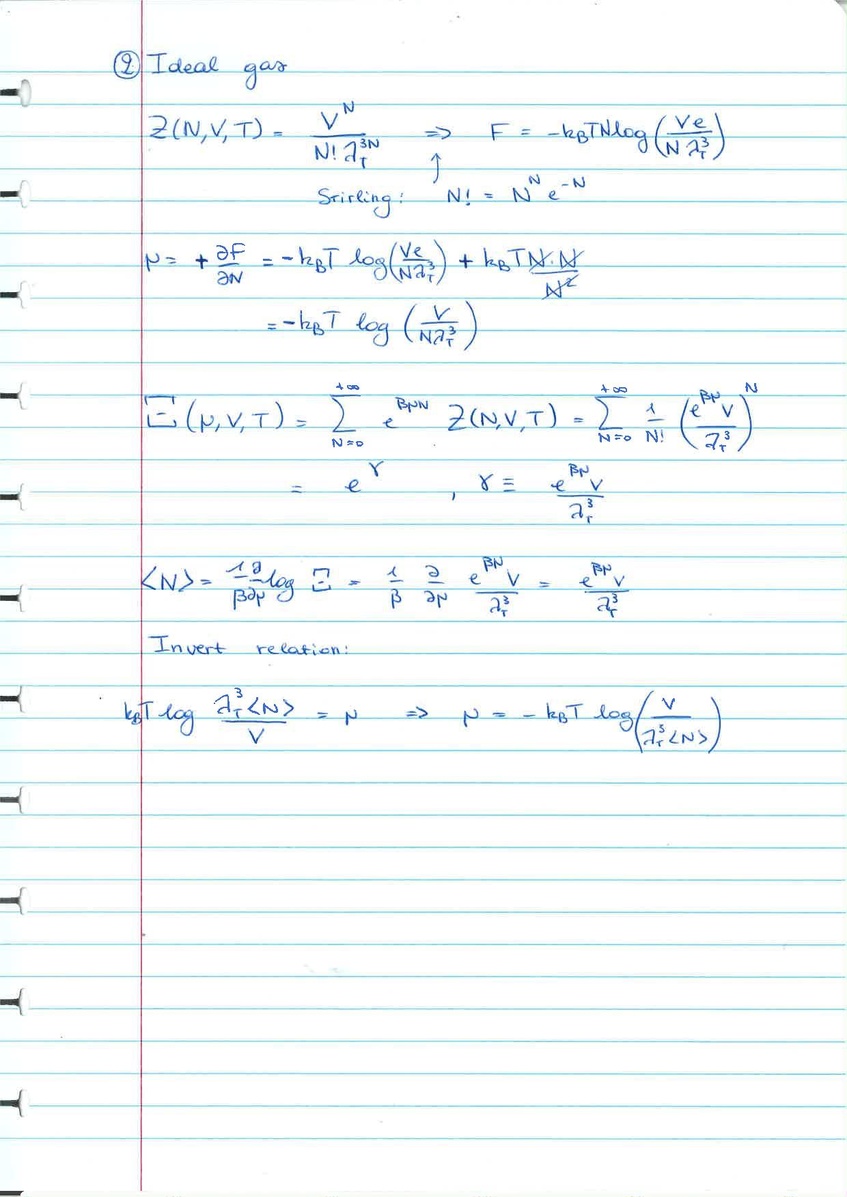 ② Ideal gas
Z(N,V,T) = V^N / (N! λ_T^{3N}) ⇒ F = -k_BTN log(Ve / (N λ_T^3))
↑
Stirling: N! = N^N e^{-N}
μ = + ∂F/∂N = -k_BT log(Ve / (Nλ_T^3)) + k_BT N·N / N^2
= -k_BT log (V / (Nλ_T^3))
Ξ(μ,V,T) = ∑_{N=0}^{+∞} e^{βμN} Z(N,V,T) = ∑_{N=0}^{+∞} 1/N! (e^{βμ} V / λ_T^3)^N
= e^γ , γ ≡ e^{βμ} V / λ_T^3
<N> = 1/β ∂/∂μ log Ξ = 1/β ∂/∂μ e^{βμ} V / λ_T^3 = e^{βμ} V / λ_T^3
Invert relation:
k_BT log λ_T^3 <N> / V = μ ⇒ μ = - k_BT log(V / (λ_T^3 <N>))